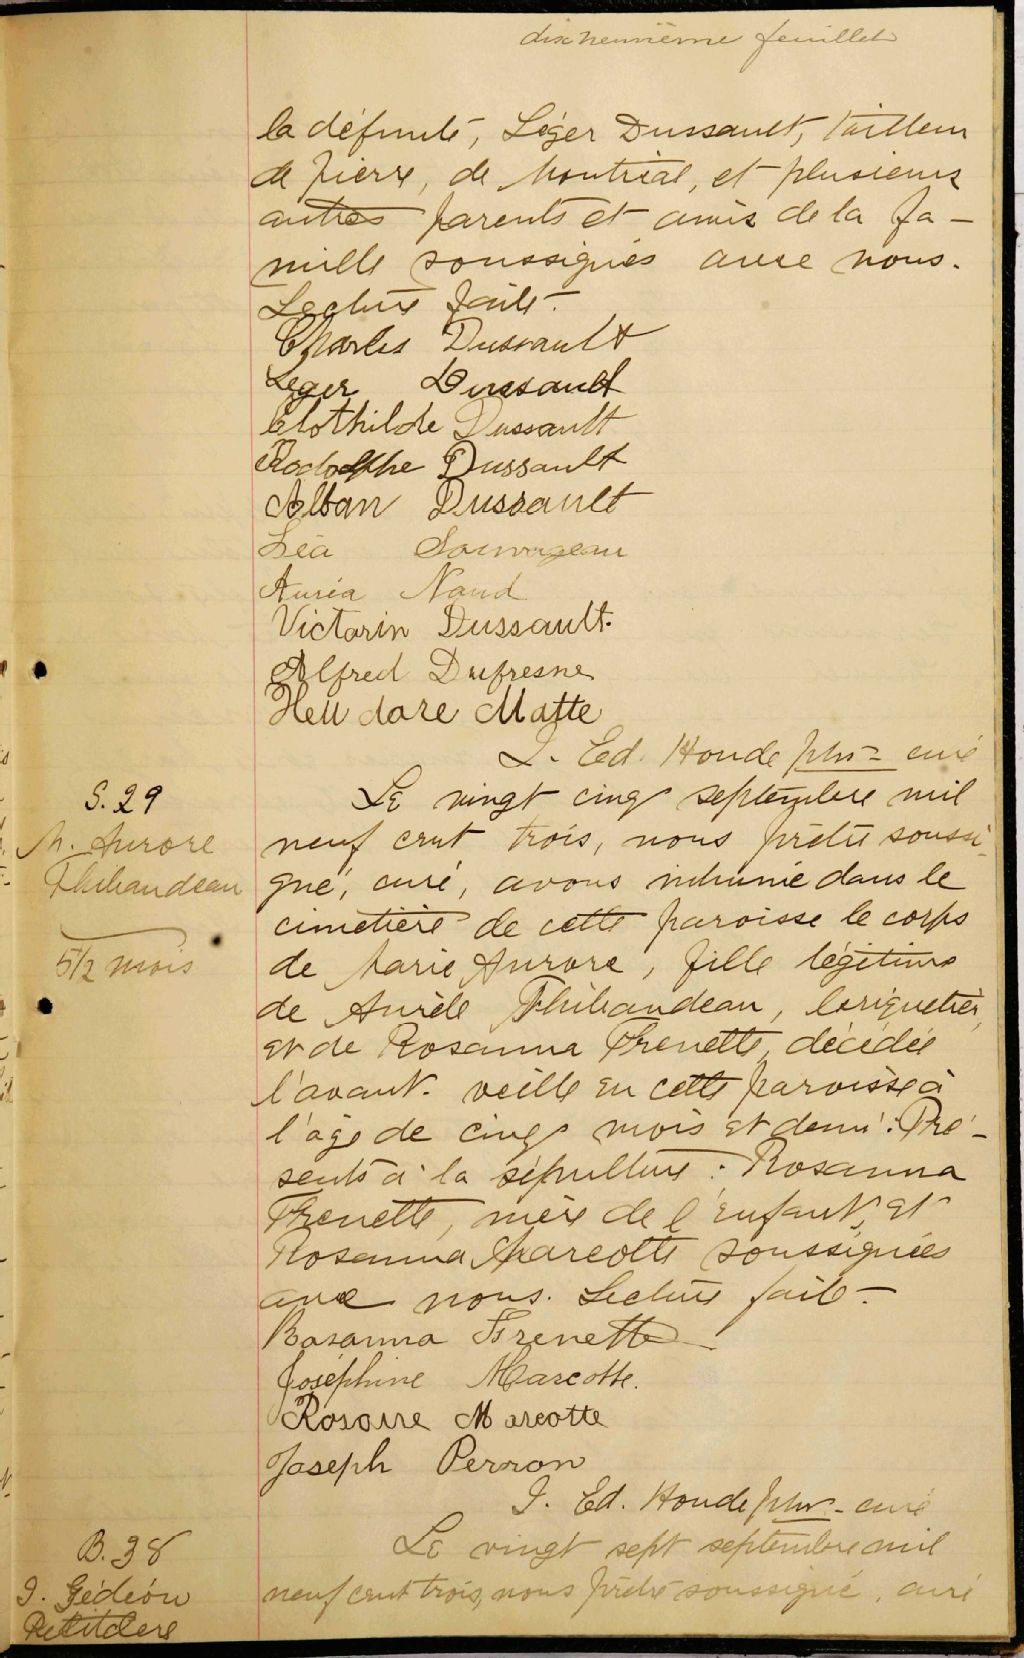 dixneuvième feuillet
la défunte, Léger Dussault, tailleur
de pierre, de Montréal, et plusieurs
autres parents et amis de la fa-
mille soussignés avec nous.
Lecture faite.
Charles Dussault
Léger Dussault
Clothilde Dussault
Rodolphe Dussault
Alban Dussault
Léa Sauvageau
Auréa Naud
Victorin Dussault.
Alfred Dufresne
Matte
J. Ed. Houde ptre curé
S. 29
M. Aurore
Thibaudeau
5 1/2 mois
Le vingt cinq septembre mil
neuf cent trois, nous prêtre soussi-
gné, curé, avons inhumé dans le
cimetière de cette paroisse le corps
de Marie Aurore, fille légitime
de Aurèle Thibaudeau, briquetier,
et de Rosanna Frenette, décédée
l'avant-veille en cette paroisse à
l'âge de cinq mois et demi. Pré-
sents à la sépulture: Rosanna
Frenette, mère de l'enfant, et
Rosanna Marcotte soussignées
avec nous. Lecture faite.
Rosanna Frenette
Joséphine Marcotte.
Marcotte
Joseph Perron
J. Ed. Houde ptre curé
B. 38
J. Gédéon
Petitclerc
Le vingt sept septembre mil
neuf cent trois, nous prêtre soussigné, curé